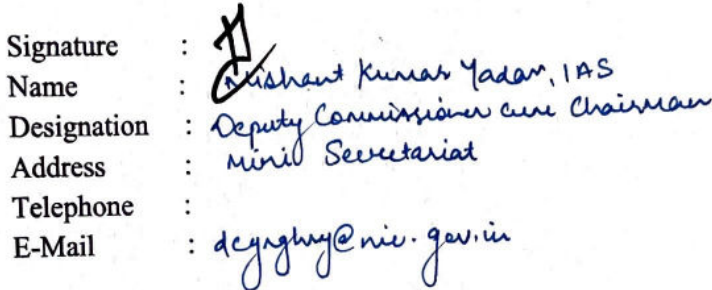 Signature :
Name : Nishant Kumar Yadav, IAS
Designation : Deputy Commissioner cum Chairman
Address : Mini Secretariat
Telephone :
E-Mail : dcgrghry@nic.gov.in